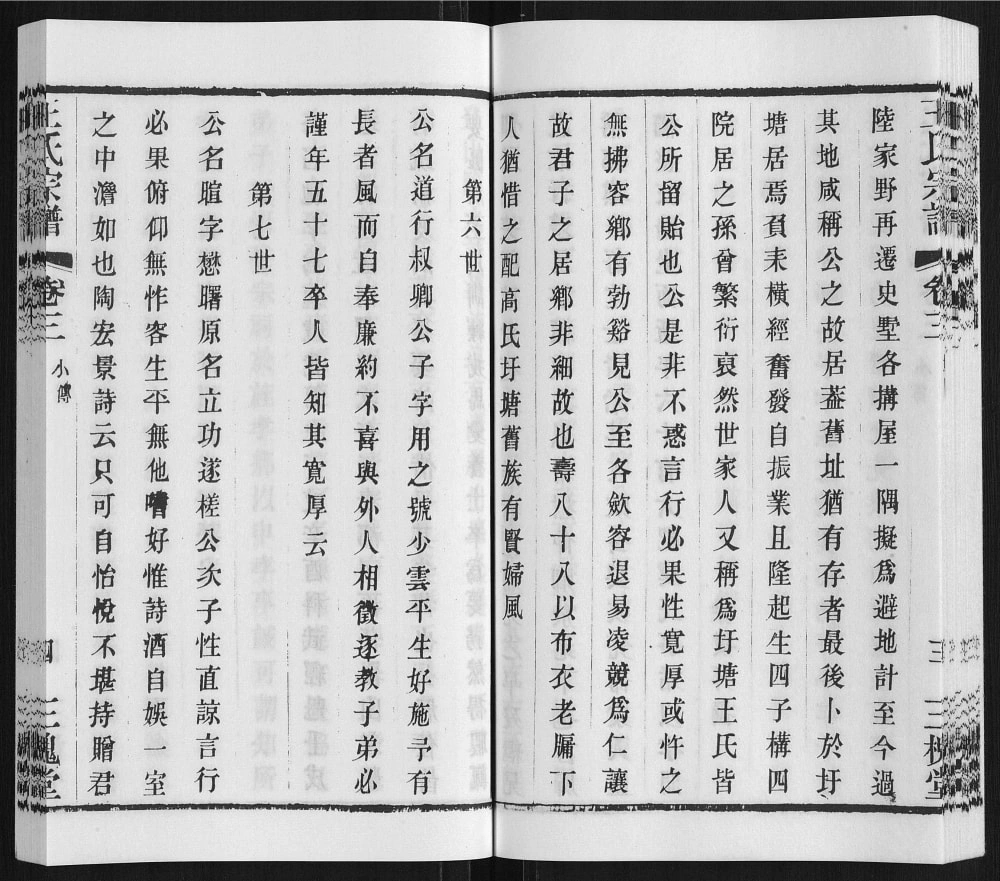 陸家野再遷史墅各搆屋一隅擬爲避地計至今過
其地咸稱公之故居葢舊址猶有存者最後卜於圩
塘居焉負耒橫經奮發自振業且隆起生四子構四
院居之孫曾繁衍裒然世家人又稱爲圩塘王氏皆
公所留貽也公是非不惑言行必果性寬厚或忤之
無拂容鄕有勃谿見公至各歛容退易凌競爲仁讓
故君子之居鄕非細故也壽八十八以布衣老牖下
人猶惜之配高氏圩塘舊族有賢婦風
第六世
公名道行叔卿公子字用之號少雲平生好施予有
長者風而自奉廉約不喜與外人相徵逐教子弟必
謹年五十七卒人皆知其寬厚云
第七世
公名暄字懋曙原名立功遂槎公次子性直諒言行
必果俯仰無怍容生平無他嗜好惟詩酒自娛一室
之中澹如也陶宏景詩云只可自怡悅不堪持贈君
王氏宗譜
卷三
小傳
四
三槐堂
王氏宗譜
卷三
小傳
三
三槐堂